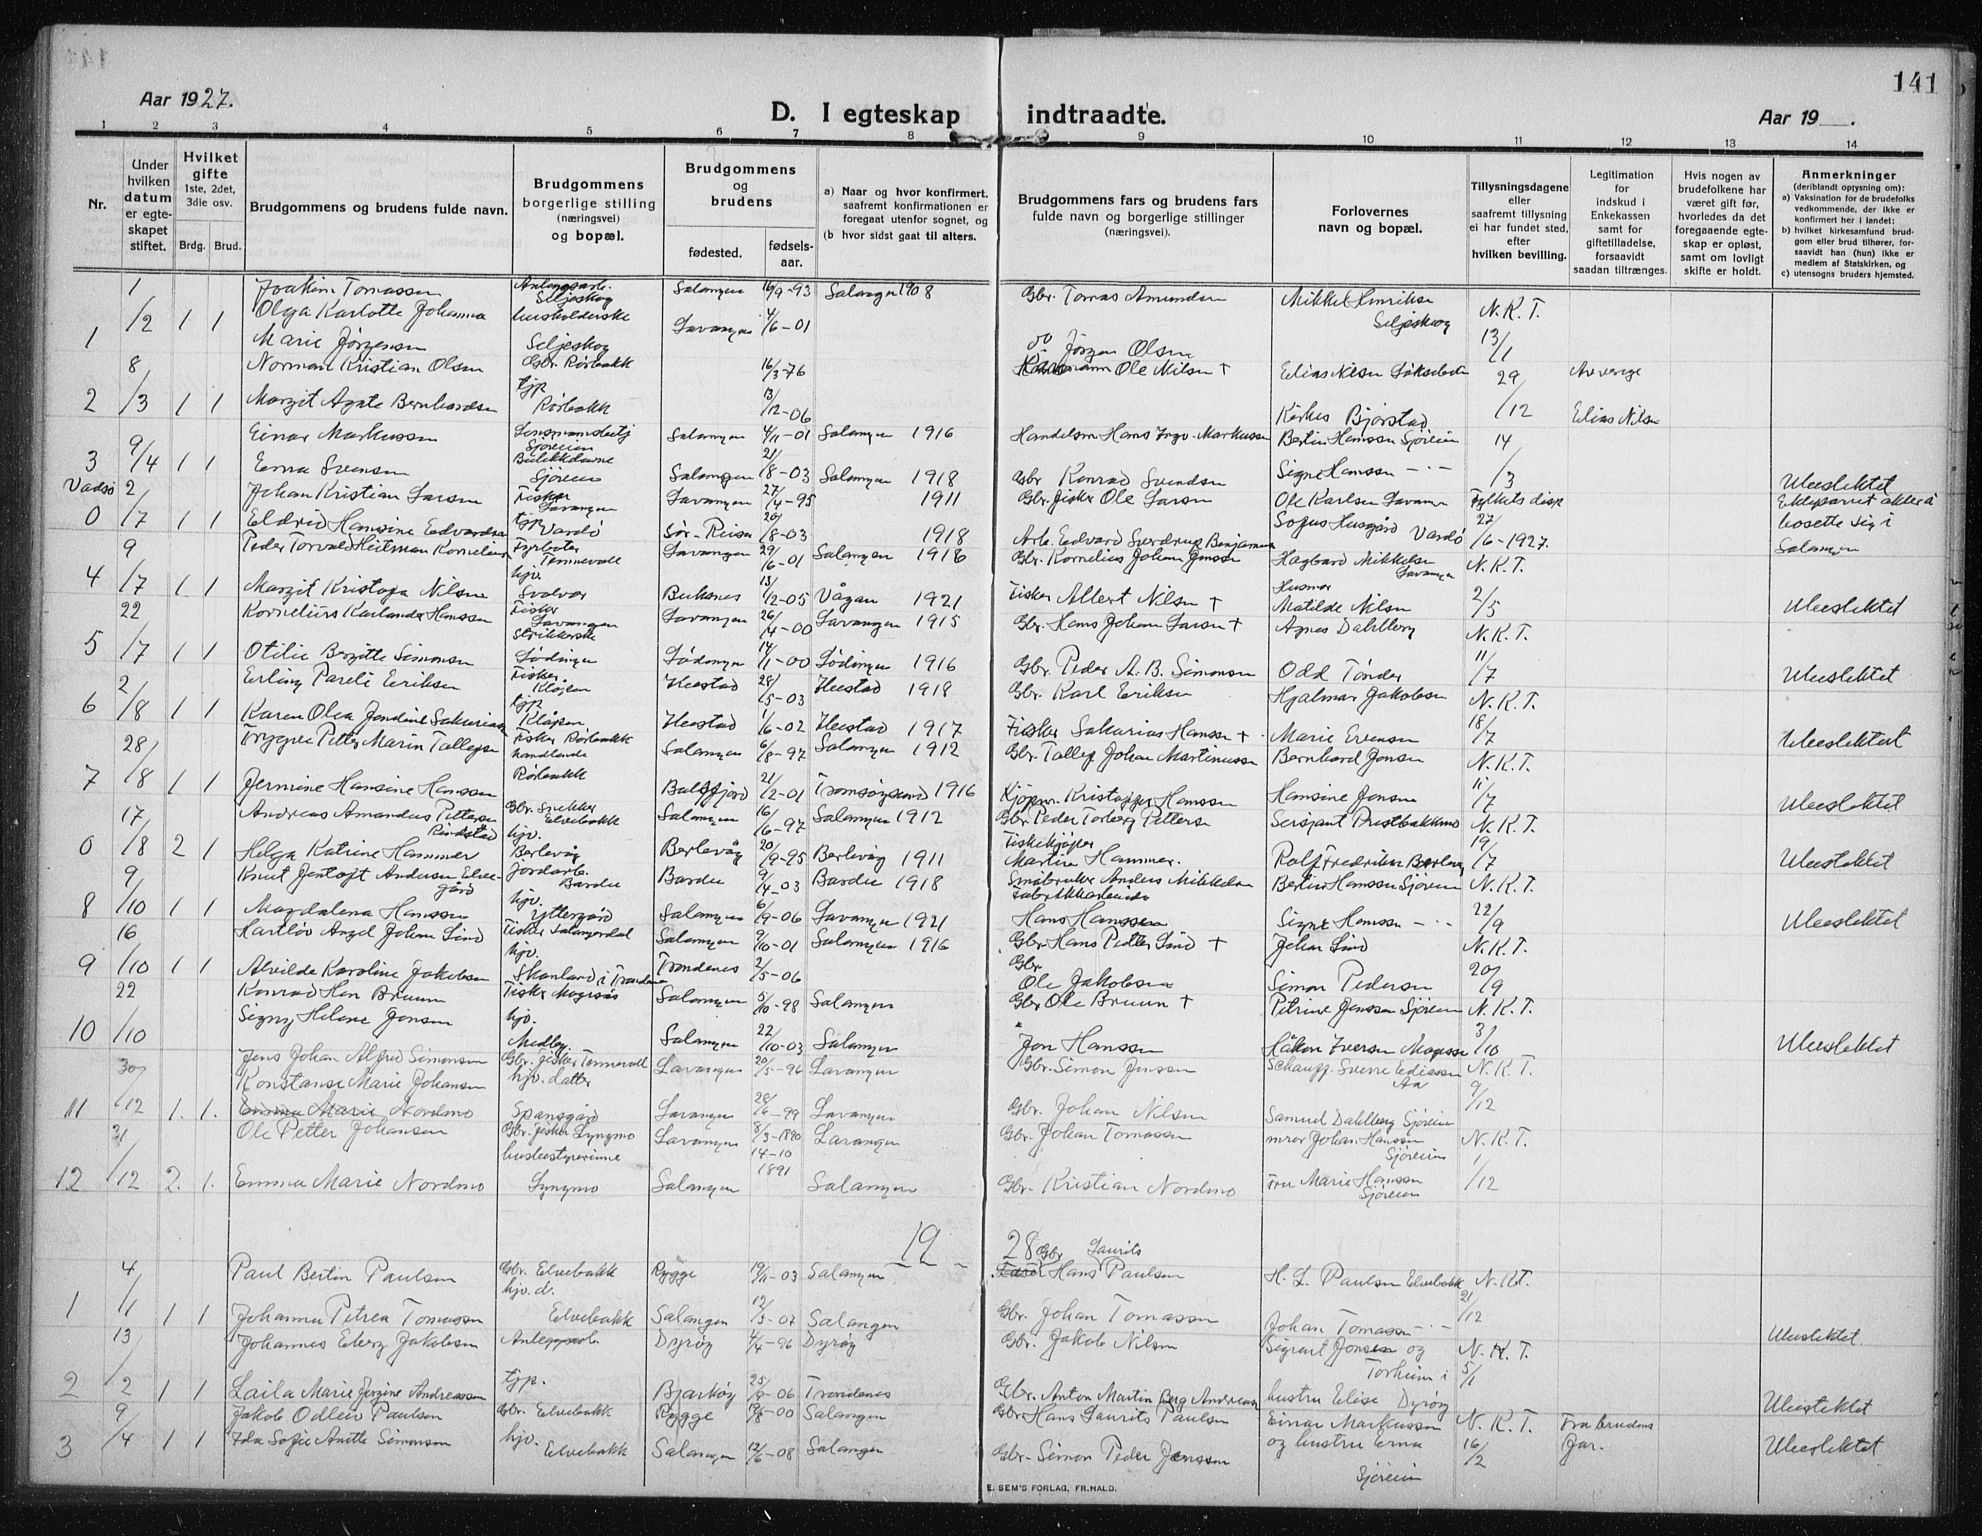 141
Aar 1927.
D. I egteskap indtraadte.
Aar 19 .
1 2 3 4 5 6 7 8 9 10 11 12 13 14
Nr.
Under hvilken datum er egteskapet stiftet.
Hvilket gifte 1ste, 2det, 3die osv.
Brdg. Brud.
Brudgommens og brudens fulde navn.
Brudgommens borgerlige stilling (næringsvei) og bopæl.
Brudgommens og brudens
fødested.
fødsels-aar.
a) Naar og hvor konfirmert, saafremt konfirmationen er foregaat utenfor sognet, og
(b hvor sidst gaat til alters.
Brudgommens fars og brudens fars fulde navn og borgerlige stillinger (næringsvei).
Forlovernes navn og bopæl.
Tillysningsdagene eller saafremt tillysning ei har fundet sted, efter hvilken bevilling.
Legitimation for indskud i Enkekassen samt for giftetilladelse, forsaavidt saadan tiltrænges.
Hvis nogen av brudefolkene har været gift før, hvorledes da det foregaaende egteskap er opløst, samt om lovligt skifte er holdt.
Anmerkninger (deriblandt opjysning om): a) Vaksination for de brudefolks vedkommende, der ikke er konfirmert her i landet; b) hvilket kirkesamfund brudgom eller brud tilhører, forsaavidt han (hun) ikke er medlem af Statskirken, og c) utensogns bruders hjemsted.
1 Joakim Tomassen Seljeskog Salangen 16/9-93 Salangen 1908 Gbr. Tomas Amundsen Mikkel Henriksen Seljeskog N.K.T.
1 /2 1 1 Olga Karlotte Johanna husholderske Lavangen 4/6-01
Marie Jørgensen Seljeskog Jørgen Olsen 13/1
8 Norman Kristian Olsen Gbr. Rørbakk 16/3-76 Ole Nilsen + Elias Nilsen 29
2 /3 1 1 Margit Agate Bernhardsen tjp. Rørbakk 13/12-06 Bjørstad /12 Elias Nilsen
9 Einar Markussen Sjøveien Salangen 4/11-01 Salangen 1916 Handelsm Hans Ingv. Markussen Bertin Hanssen Sjøveien 14
3 /4 1 1 Erna Svensen Sjøveien Salangen 21/8-03 Salangen 1918 Gbr Konrad Svendsen Signe Hanssen - · - /3 Uteslektet
Vadsø 2 Johan Kristian Larsen Fisker Lavangen Lavangen 27/4-95 1911 Gbr. fisker Ole Larsen Ole Karlsen Lavangen Fylkets disp Ekteparret akter å
0 /7 1 1 Eldrid Hansine Edvardsen tjp Vardø Sør-Reisa 20/8-03 1918 Arb. Edvard Sverdrup Benjaminsen Sofus Husgård Vardø 27/6-1927. bosette sig i Salangen
9 Peder Torvald Heitman Kornelius Fyrbøter Tennevoll Lavangen 29/6-01 Salangen 1916 Gbr. Kornelius Johan Jensen Hagbard Mikkelsen Lavangen N.K.T.
4 /7 1 1 Margit Kristofa Nilsen hjv. Svolvær Buksnes 13/12-05 Vågan 1921 Fisker Albert Nilsen + Husmor Matilde Nilsen 2/5 Uteslektet
22 Kornelius Karlander Hanssen Fisker Lavangen Lavangen 26/4-00 Lavangen 1915 Gbr. Hans Johan Larsen + Agnes Dahlberg N.K.T.
5 /7 1 1 Otilie Bergitte Simonsen Strikkerske Lødingen Lødingen 14/1-00 Lødingen 1916 Gbr. Peder A. B. Simonsen Odd Tønder 11/7 Uteslektet
2 Erling Pareli Eriksen Fisker Kløven 28/5-03 1918 Gbr. Karl Eriksen Hjalmar Jakobsen N.K.T.
6 /8 1 1 Karen Olea Jendine Sakariassen tjp. Kløven 1/6-02 1917 Fisker Sakarias Hanssen + Marie Evensen 18/7 Uteslektet
28 Trygve Petter Marin Tollefsen Fisker Rørbakk Salangen 6/8-97 Salangen 1912 Gbr. Tollef Johan Martinussen Bernhard Jensen N.K.T.
7 /8 1 1 Jermine Hansine Hanssen handlende Rørbakk Balsfjord 21/2-01 Tromsøysund 1916 Kjøpm. Kristoffer Hanssen Hansine Jensen 11/7 Uteslektet
17 Andreas Amandus Pettersen Rundstad Gbr. Snekker Elvebakk Salangen 16/6-97 Salangen 1912 Gbr. Peder Torberg Pettersen Sersjant Prestbakkmo N.K.T.
0 /8 2 1 Helga Katrine Hammer hjv. Berlevåg Berlevåg 20/9-95 Berlevåg 1911 Fiskekjøper Martin Hammer. Rolf Fredriksen 19/7 Uteslektet
9 Knut Jentoft Andersen Elvegård Jordarb. Bardu Bardu 9/4-03 Bardu 1918 Småbruker Anders Mikkelsen Bertin Hanssen Sjøveien N.K.T.
8 /10 1 1 Magdalena Hanssen hjv. Yttergård Salangen 6/9-06 Lavangen 1921 Fabrikkarbeider Hans Hanssen Signe Hanssen - · - 22/9 Uteslektet
16 Hartløv Angel Johan Lind Fisker Salangsdal Salangen 9/10-01 Salangen 1916 Gbr. Hans Petter Lind + Johan Lind N.K.T.
9 /10 1 1 Alvilde Karoline Jakobsen hjv. Skånland i Trondenes Trondenes 2/5-06 Gbr Ole Jakobsen Simon Pedersen 20/9
22 Konrad Hen Bruun Fisker Medby Salangen 5/10-98 Salangen Gbr Ole Bruun + Petrine Jenssen Sjøveien N.K.T.
10 /10 Signy Helene Jensen hjv. Medby Salangen 22/10-03 Salangen Jon Hanssen Håkon Iversen 3/10 Uteslektet
30 Jens Johan Alfred Simonsen Gbr. fisker Tennevoll Lavangen 20/5-96 Lavangen Gbr. Simon Jensen Sverre N.K.T.
Konstanse Marie Johansen hjv. datter
11 /12 1. 1. Emma Marie Nordmo Spansgård Lavangen 28/6-99 Lavangen Gbr. Johan Nilsen Samuel Dahlberg Sjøveien 9/12
31 Ole Petter Johansen Gbr. fisker Lyngmo Lavangen 8/3-1890 Lavangen Gbr. Johan Tomassen Johan Hanssen Sjøveien N.K.T.
12 /12 2. 1. Emma Marie Nordmo husbestyrerinne Lyngmo Salangen 14-10 1891 Salangen Gbr. Kristian Nordmo Fru Marie Hanssen Sjøveien 1/12
12 -
28
4 Paul Bertin Paulsen Gbr. Elvebakk Rygge 19/11-03 Salangen Gbr Laurits Hans Paulsen H. L. Paulsen Elvebakk N.K.T.
1 /1 1 1 Johanna Petrea Tomassen hjv. d. Elvebakk Salangen 12/3-07 Salangen Gbr. Johan Tomassen Johan Tomassen - · - 21/12
13 Johannes Eberg Jakobsen Anleggsarb. Dyrøy 4/4-96 Dyrøy Gbr. Jakob Nilsen Sigvart Jensen og N.K.T. Uteslektet
2 /2 1 1 Laila Marie Jørgine Andreassen tjp. Bjarkøy 25/8-06 Trondenes Gbr. Anton Martin Berg Andreassen hustru Elise Dyrøy 5/1 Uteslektet
9 Jakob Odleiv Paulsen Gbr. Elvebakk Rygge 19/8-00 Salangen Gbr Hans Laurits Paulsen Einar Markussen N.K.T. Fra brudens
3 /4 1 1 Ida Sofie Anette Simonsen hjv. Elvebakk Salangen 12/6-08 Salangen Gbr. Simon Peder Jenssen og hustru Erna Sjøveien 16/2 far. Uteslektet
E. SEM'S FORLAG, FR.HALD.